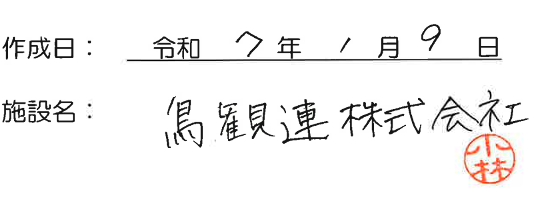 作成日： 令和 7 年 1 月 9 日
施設名： 鳥観連株式会社
小林